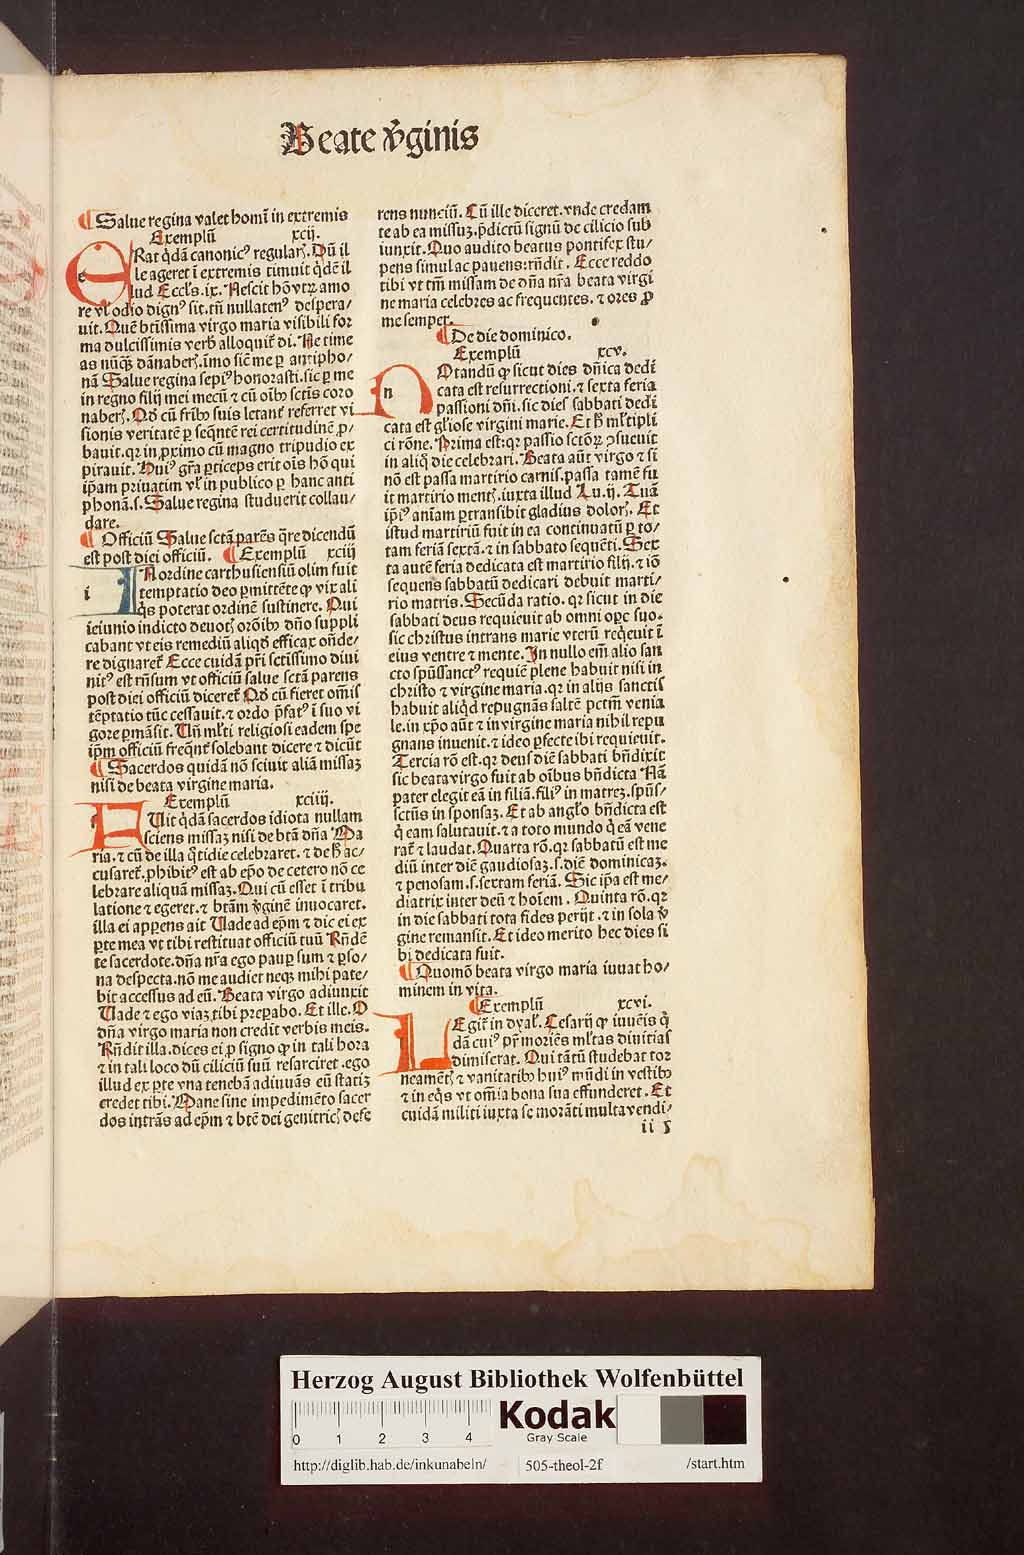 Beate v̾ginis
¶ Salue regina valet homī in extremis
Exemplū xcij.
ERat q̄dā canonicꝰ regularꝭ. Dū il
le ageret ī extremis timuit q̄dē il
lud Eccl's. ix. Nescit hō vtꝝ amo
re vl' odio dignꝰ sit. tn̄ nullatenꝰ despera/
uit. Quē btīssima virgo maria visibili for
ma dulcissimis verb̄ alloquit᷑ di. Ne time
as nūqꝫ dānaberꝭ. imo sic̄ me ꝑ antipho/
nā Salue regina sepiꝰ honorasti. sic ꝑ me
in regno filij mei mecū ⁊ cū oībꝰ sctīs coro
naberꝭ. Qd̓ cū frībꝰ suis letant᷑ referret vi
sionis veritatē ꝑ seq̄ntē rei certitudinē ꝓ/
bauit. qꝛ in ꝓximo cū magno tripudio ex
pirauit. Huiꝰ grā ꝑticeps erit oīs hō qui
ip̄am priuatim vl' in publico ꝑ hanc anti
phonā. s. Salue regina studuerit collau/
dare.
¶ Officiū Salue sctā parēs q̄re dicendū
est post diei officiū. ¶ Exemplū xciij
IN ordine carthusiensiū olim fuit
temptatio deo ꝑmittēte ꝙ vix ali
q̄s poterat ordinē sustinere. Qui
ieiunio indicto deuotꝭ orōībꝰ dn̄o suppli
cabant vt eis remediū aliqd̓ efficax on̄de/
re dignaret᷑ Ecce cuidā pr̄i sctīssimo diui
nitꝰ est rn̄sum vt officiū salue sctā parens
post diei officiū diceret᷑ Qd̓ cū fieret om̄is
tēptatio tūc cessauit. ⁊ ordo p̄fatꝰ ī suo vi
gore ꝑmāsit. Un̄ ml'ti religiosi eadem spe
ip̄m officiū freq̄nt᷑ solebant dicere ⁊ dicūt
¶ Sacerdos quidā nō sciuit aliā missaꝫ
nisi de beata virgine maria.
Exemplū xciiij.
FUit q̄dā sacerdos idiota nullam
sciens missaꝫ nisi de btā dn̄a Ma
ria. ⁊ cū de illa q̄tidie celebraret. ⁊ de h̄ ac/
cusaret᷑. ꝓhibitꝰ est ab ep̄o de cetero nō ce
lebrare aliquā missaꝫ. Qui cū esset ī tribu
latione ⁊ egeret. ⁊ btām v̾ginē inuocaret.
illa ei apꝑens ait Uade ad ep̄m ⁊ dic ei ex
ꝑte mea vt tibi restituat officiū tuū Rn̄dē
te sacerdote. dn̄a nrā ego pauꝑ sum ⁊ ꝑso/
na despecta. nō me audiet neqꝫ mihi pate/
bit accessus ad eū. Beata virgo adiunxit
Uade ⁊ ego viaꝫ tibi preꝑabo. Et ille. O
dn̄a virgo maria non credit verbis meis.
Rn̄dit illa. dices ei ꝓ signo ꝙ in tali hora
⁊ in tali loco dū ciliciū suū resarciret. ego
illud ex ꝑte vna tenebā adiuuās eū statiꝫ
credet tibi. Mane sine impedimēto sacer
dos intrās ad ep̄m ⁊ btē dei genitricꝭ defe
rens nunciū. Cū ille diceret. vnde credam
te ab ea missuꝫ. p̄dictū signū de cilicio sub
iunxit. Quo audito beatus pontifex stu/
pens simul ac pauens: rn̄dit. Ecce reddo
tibi vt tm̄ missam de dn̄a nrā beata virgi
ne maria celebres ac frequentes. ⁊ ores ꝓ
me semper.
¶ De die dominico.
Exemplū xcv.
NOtandū ꝙ sicut dies dn̄ica dedi
cata est resurrectioni. ⁊ sexta feria
passioni dn̄i. sic dies sabbati dedi
cata est gl'iose virgini marie. Et h̄ ml'tipli
ci rōne. Prima est: qꝛ passio sctōꝝ ꝯsueuit
in aliq̄ die celebrari. Beata aūt virgo ⁊ si
nō est passa martirio carnis. passa tamē fu
it martirio mentꝭ. iuxta illud Lu. ij. Tuā
ip̄iꝰ aniam ꝑtransibit gladius dolorꝭ. Et
istud martiriū fuit in ea continuatū ꝑ to/
tam feriā sextā. ⁊ in sabbato sequēti. Sex
ta autē feria dedicata est martirio filij. ⁊ iō
sequens sabbatū dedicari debuit marti/
rio matris. Secūda ratio. qꝛ sicut in die
sabbati deus requieuit ab omni oꝑe suo.
sic christus intrans marie vterū req̄euit ī
eius ventre ⁊ mente. In nullo em̄ alio san
cto spūssanctꝰ requiē plene habuit nisi in
christo ⁊ virgine maria. qꝛ in alijs sanctis
habuit aliqd̓ repugnās saltē pctm̄ venia
le. in xp̄o aūt ⁊ in virgine maria nihil repu
gnans inuenit. ⁊ ideo ꝑfecte ibi requieuit.
Tercia rō est. qꝛ deus diē sabbati bn̄dixit
sic beata virgo fuit ab oībus bn̄dicta Nā
pater elegit eā in filiā. filiꝰ in matreꝫ. spūs/
sctūs in sponsaꝫ. Et ab angl'o bn̄dicta est
q̄ eam salutauit. ⁊ a toto mundo q̄ eā vene
rat᷑ ⁊ laudat. Quarta rō. qꝛ sabbatū est me
diū inter diē gaudiosaꝫ. s. diē dominicaꝫ.
⁊ penosam. s. sextam feriā. Sic ip̄a est me/
diatrix inter deū ⁊ hoīem. Quinta rō. qꝛ
in die sabbati tota fides perijt. ⁊ in sola v̾
gine remansit. Et ideo merito hec dies si
bi dedicata fuit.
¶ Quomō beata virgo maria iuuat ho/
minem in vita.
¶ Exemplū xcvi.
LEgit᷑ in dyal'. Cesarij ꝙ iuuēis q̄
dā cuiꝰ pr̄ moriēs ml'tas diuitias
dimiserat. Qui tātū studebat tor
neamētꝭ ⁊ vanitatibꝰ huiꝰ mūdi in vestibꝰ
⁊ in eq̄s vt om̄ia bona sua effunderet. Et
cuidā militi iuxta se morāti multa vendi/
ii 5
Herzog August Bibliothek Wolfenbüttel
0 1 2 3 4
Kodak
Gray Scale
http://diglib.hab.de/inkunabeln/ 505-theol-2f /start.htm